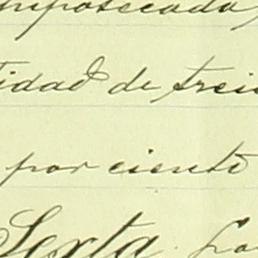 hipotecada,
tidad de trei
por ciento
Sexta.